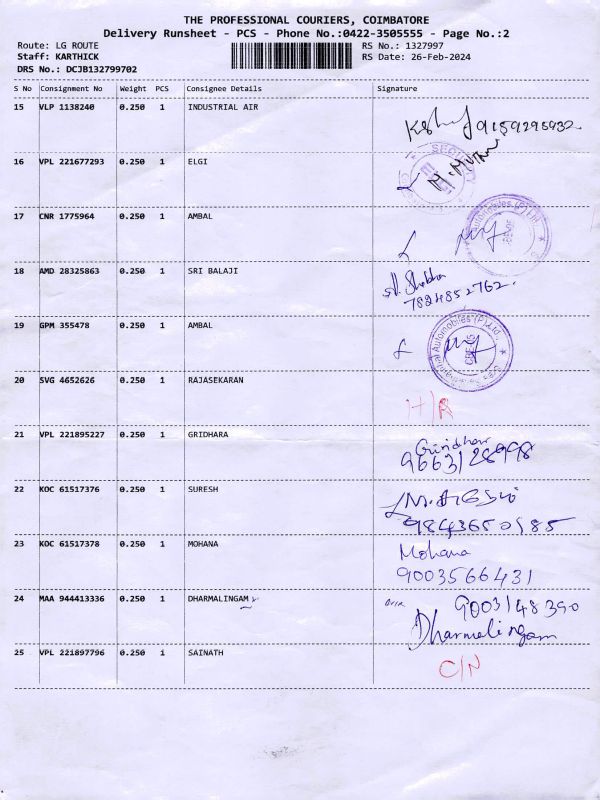 THE PROFESSIONAL COURIERS, COIMBATORE
Delivery Runsheet - PCS - Phone No.:0422-3505555 - Page No.:2
Route: LG ROUTE RS No.: 1327997
Staff: KARTHICK RS Date: 26-Feb-2024
DRS No.: DCJB132799702
S No Consignment No Weight PCS Consignee Details Signature
15 VLP 1138240 0.250 1 INDUSTRIAL AIR
9159295932
16 VPL 221677293 0.250 1 ELGI
SECURITY
17 CNR 1775964 0.250 1 AMBAL
Automobiles (P) Ltd.
18 AMD 28325863 0.250 1 SRI BALAJI
7824852762.
19 GPM 355478 0.250 1 AMBAL
Automobiles (P) Ltd.
20 SVG 4652626 0.250 1 RAJASEKARAN
H/R
21 VPL 221895227 0.250 1 GRIDHARA
9663128998
22 KOC 61517376 0.250 1 SURESH
9843650985
23 KOC 61517378 0.250 1 MOHANA
Mohana
9003566431
24 MAA 944413336 0.250 1 DHARMALINGAM
9003148390
Dharmalingam
25 VPL 221897796 0.250 1 SAINATH
C/N